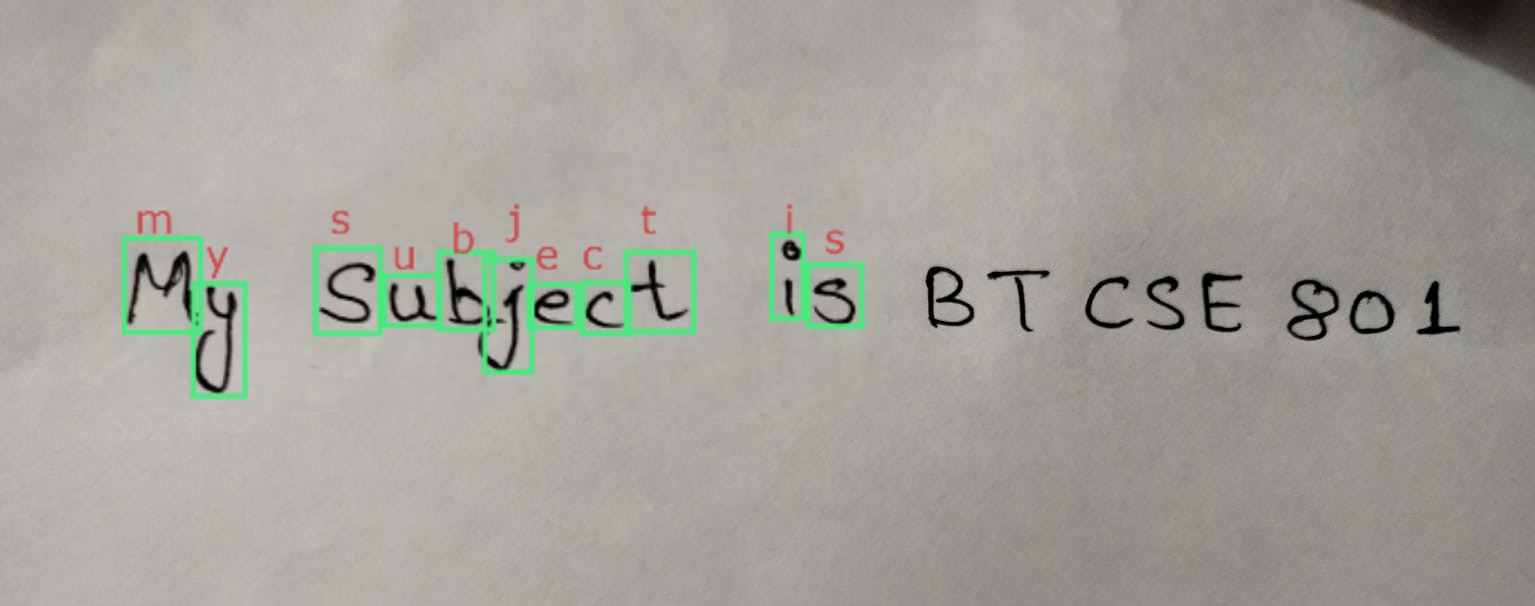 m y s u b j e c t i s
My Subject is BT CSE 801